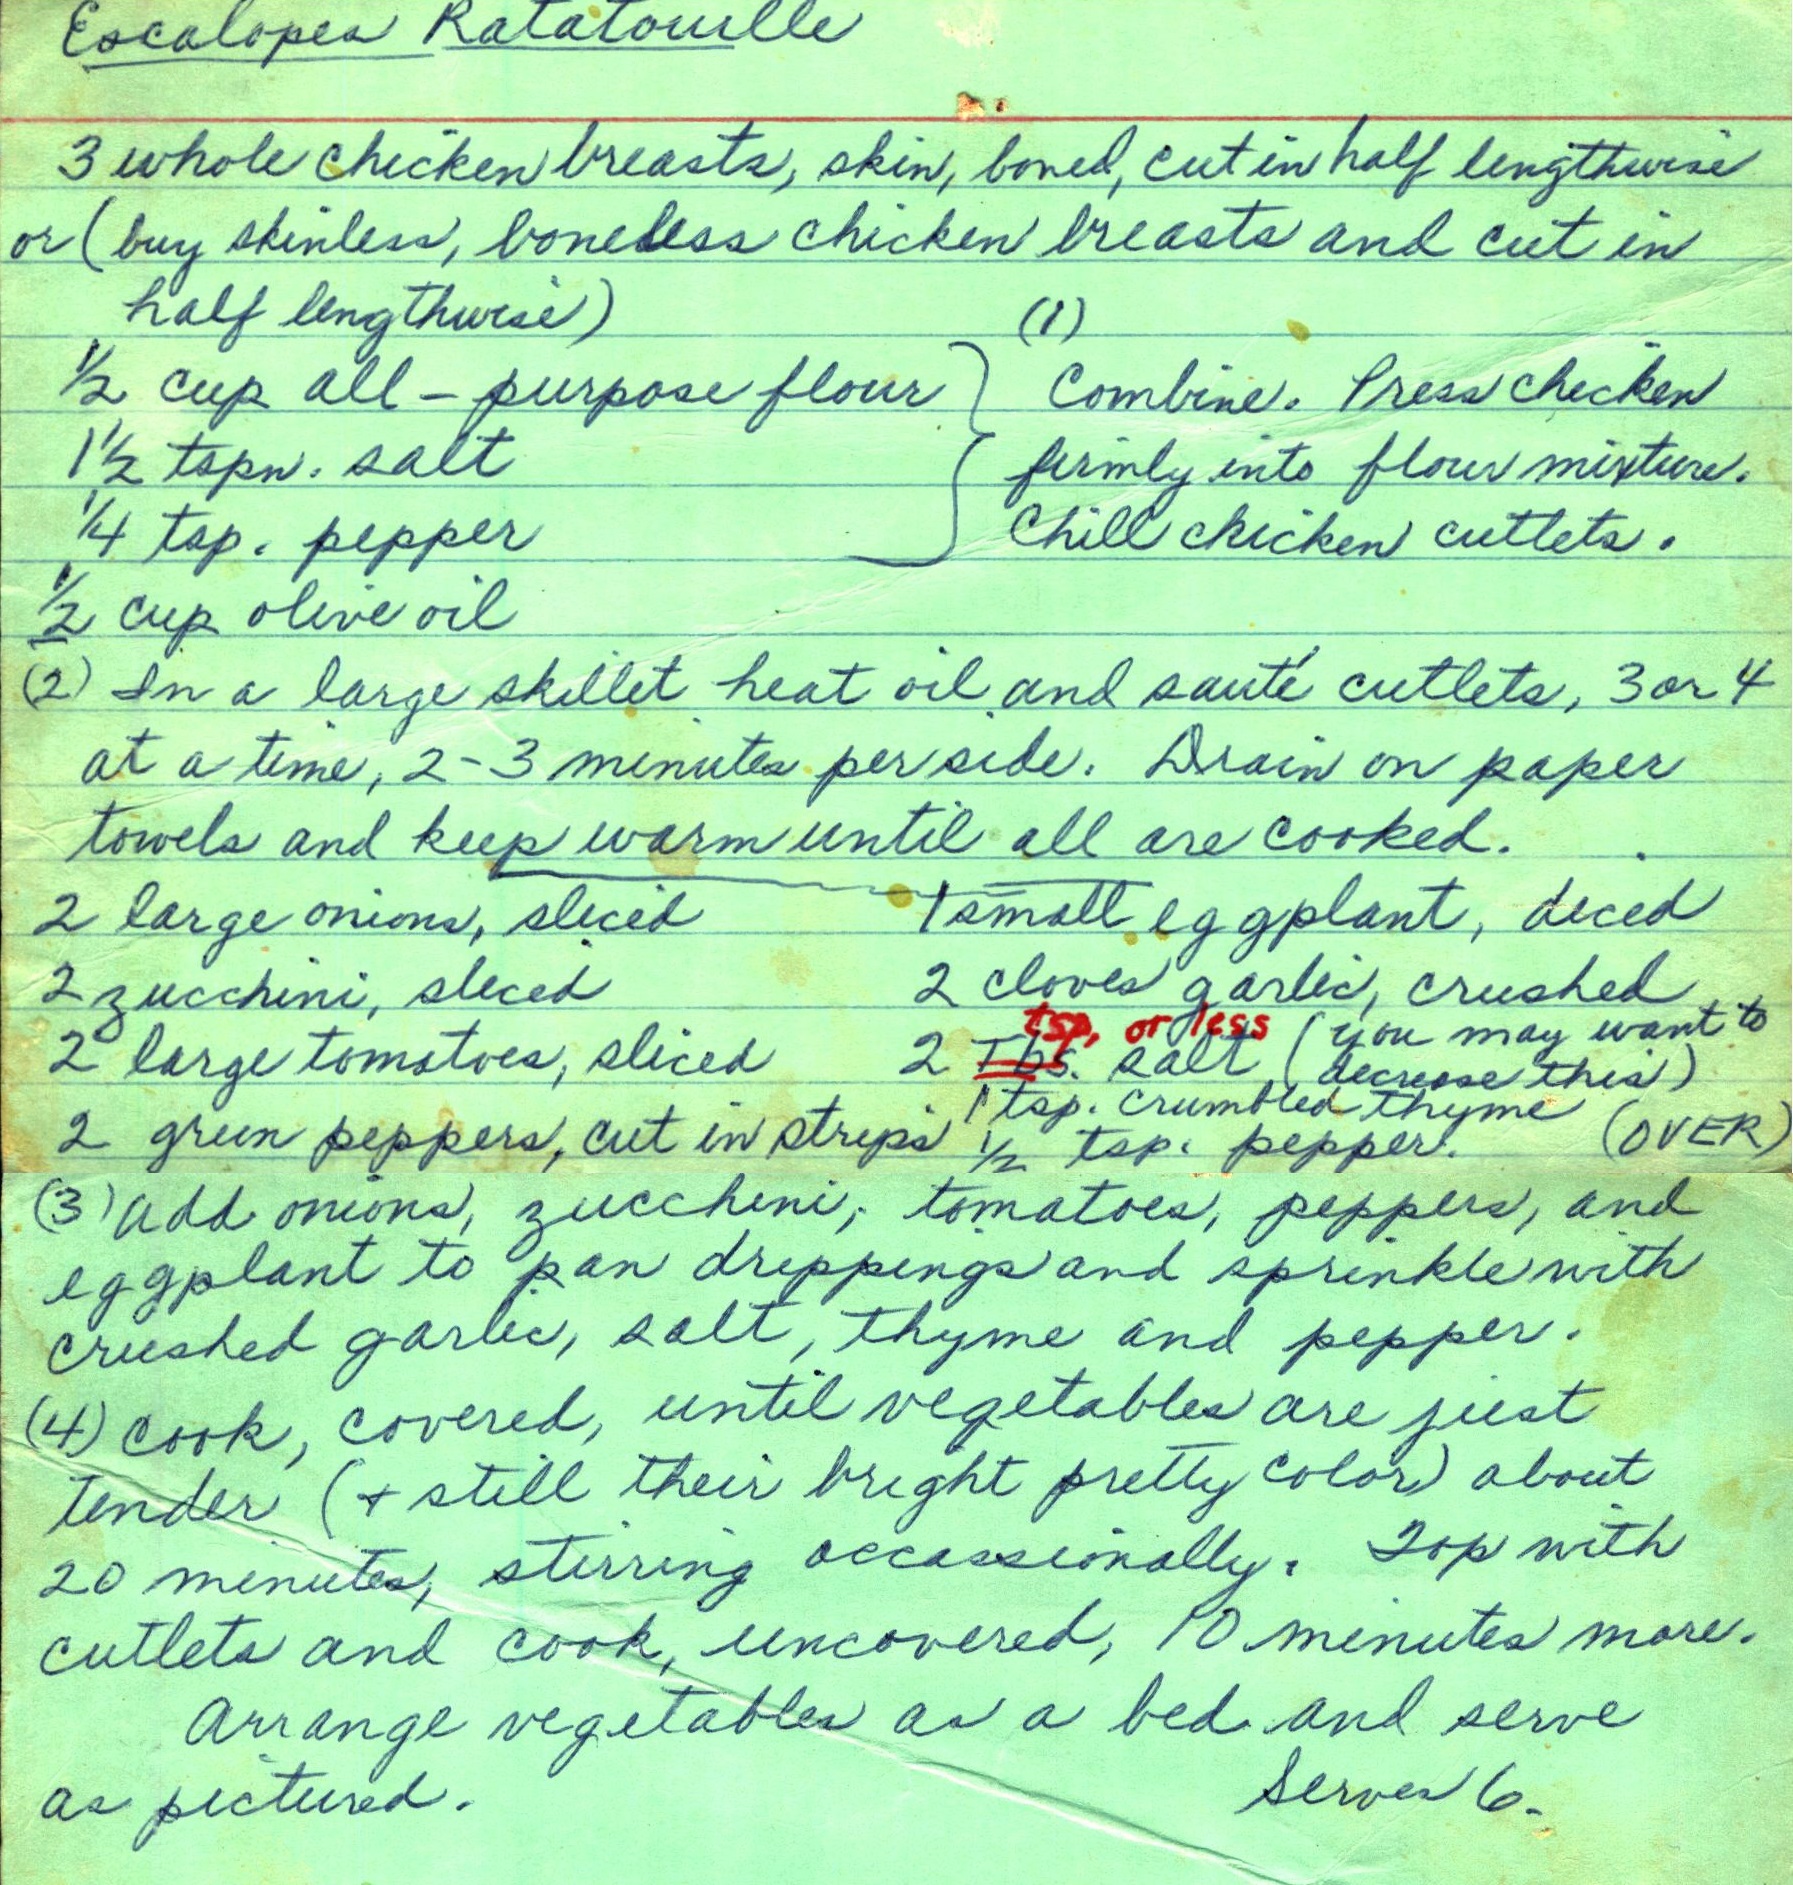 Escalopes Ratatouille
3 whole chicken breasts, skin, boned, cut in half lengthwise
or (buy skinless, boneless chicken breasts and cut in
half lengthwise)
(1)
1/2 cup all-purpose flour
Combine. Press chicken
1 1/2 tspn. salt
firmly into flour mixture.
1/4 tsp. pepper
Chill chicken cutlets.
1/2 cup olive oil
(2) In a large skillet heat oil and sauté cutlets, 3 or 4
at a time, 2-3 minutes per side. Drain on paper
towels and keep warm until all are cooked.
2 large onions, sliced
1 small eggplant, diced
2 zucchini, sliced
2 cloves garlic, crushed
tsp, or less
2 large tomatoes, sliced
2 Tbs. salt (you may want to
decrease this)
1 tsp. crumbled thyme
2 green peppers, cut in strips
1/2 tsp. pepper.
(OVER)
(3) Add onions, zucchini, tomatoes, peppers, and
eggplant to pan drippings and sprinkle with
crushed garlic, salt, thyme and pepper.
(4) Cook, covered, until vegetables are just
tender (+ still their bright pretty color) about
20 minutes, stirring occassionally. Top with
cutlets and cook, uncovered, 10 minutes more.
Arrange vegetables as a bed and serve
as pictured.
Serves 6.